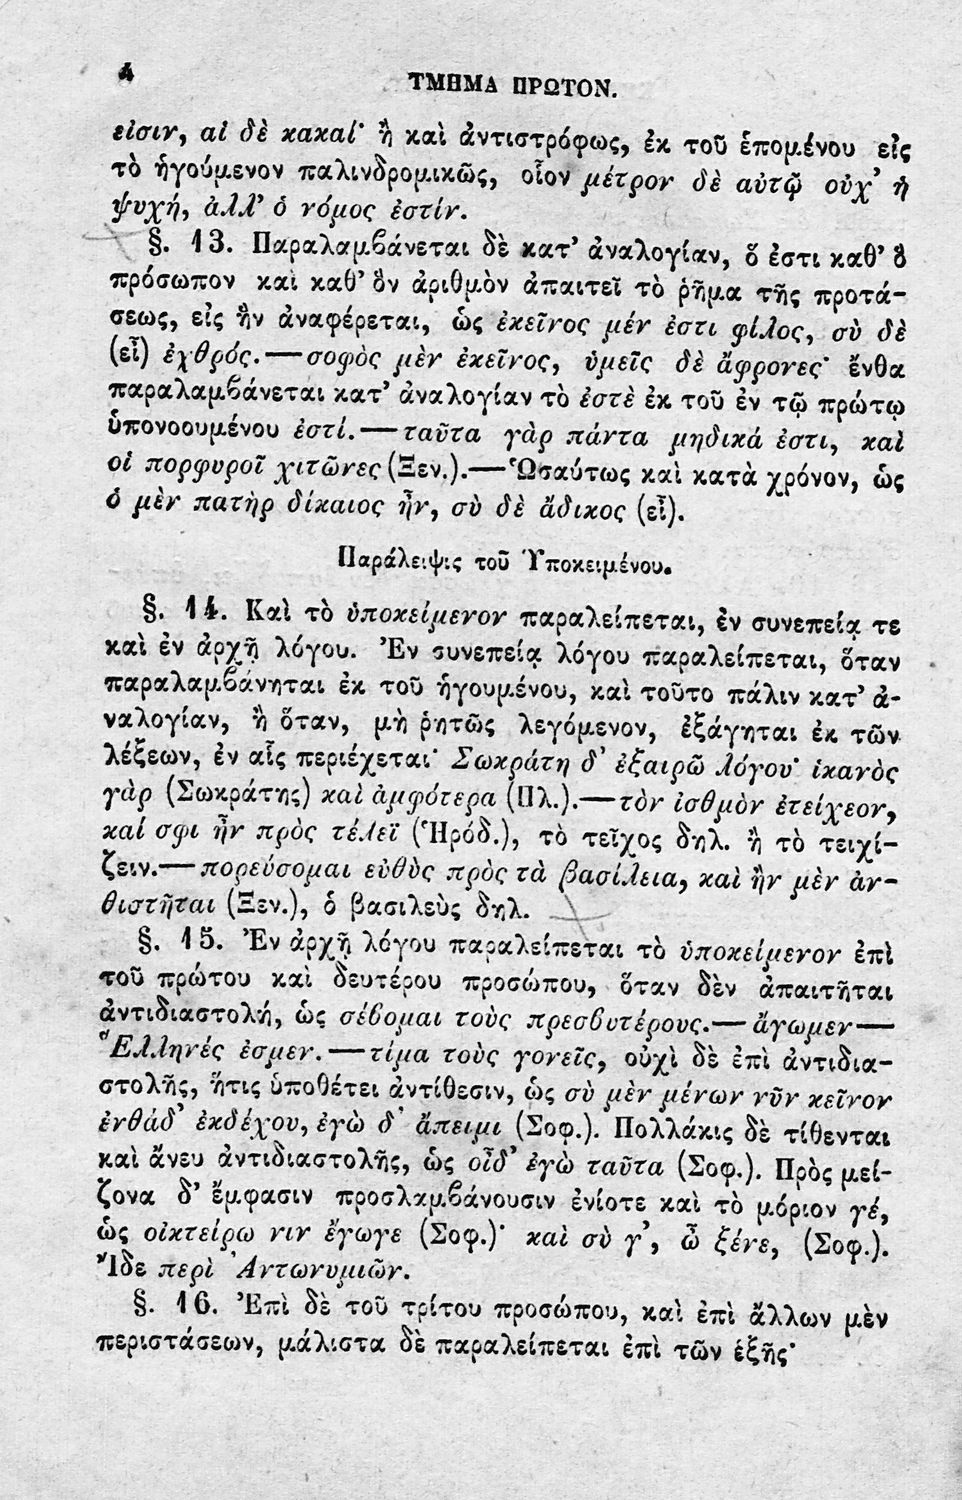 4
ΤΜΗΜΑ ΠΡΩΤΟΝ.
εἰσιν, αἱ δὲ κακαί· ἢ καὶ ἀντιστρόφως, ἐκ τοῦ ἑπομένου εἰς
τὸ ἡγούμενον παλινδρομικῶς, οἷον μέτρον δὲ αὐτῷ οὐχ’ ἡ
ψυχή, ἀλλ’ ὁ νόμος ἐστίν.
§. 13. Παραλαμϐάνεται δὲ κατ’ ἀναλογίαν, ὅ ἐστι καθ’ ὃ
πρόσωπον καὶ καθ’ ὃν ἀριθμὸν ἀπαιτεῖ τὸ ῥῆμα τῆς προτά-
σεως, εἰς ἣν ἀναφέρεται, ὡς ἐκεῖνος μέν ἐστι φίλος, σὺ δὲ
(εἶ) ἐχθρός.—σοφὸς μὲν ἐκεῖνος, ὑμεῖς δὲ ἄφρονες· ἔνθα
παραλαμϐάνεται κατ’ ἀναλογίαν τὸ ἐστὲ ἐκ τοῦ ἐν τῷ πρώτῳ
ὑπονοουμένου ἐστί.—ταῦτα γὰρ πάντα μηδικά ἐστι, καὶ
οἱ πορφυροῖ χιτῶνες (Ξεν.).—Ὡσαύτως καὶ κατὰ χρόνον, ὡς
ὁ μὲν πατὴρ δίκαιος ἦν, σὺ δὲ ἄδικος (εἶ).
Παράλειψις τοῦ Ὑποκειμένου.
§. 14. Καὶ τὸ ὑποκείμενον παραλείπεται, ἐν συνεπείᾳ τε
καὶ ἐν ἀρχῇ λόγου. Ἐν συνεπείᾳ λόγου παραλείπεται, ὅταν
παραλαμϐάνηται ἐκ τοῦ ἡγουμένου, καὶ τοῦτο πάλιν κατ’ ἀ-
ναλογίαν, ἢ ὅταν, μὴ ῥητῶς λεγόμενον, ἐξάγηται ἐκ τῶν
λέξεων, ἐν αἷς περιέχεται· Σωκράτη δ’ ἐξαιρῶ λόγου· ἱκανὸς
γὰρ (Σωκράτης) καὶ ἀμφότερα (Πλ.).—τὸν ἰσθμὸν ἐτείχεον,
καί σφι ἦν πρὸς τέλεϊ (Ἡρόδ.), τὸ τεῖχος δηλ. ἢ τὸ τειχί-
ζειν.—πορεύσομαι εὐθὺς πρὸς τὰ βασίλεια, καὶ ἢν μὲν ἀν-
θιστῆται (Ξεν.), ὁ βασιλεὺς δηλ.
§. 15. Ἐν ἀρχῇ λόγου παραλείπεται τὸ ὑποκείμενον ἐπὶ
τοῦ πρώτου καὶ δευτέρου προσώπου, ὅταν δὲν ἀπαιτῆται
ἀντιδιαστολή, ὡς σέϐομαι τοὺς πρεσϐυτέρους.—ἄγωμεν—
Ἕλληνές ἐσμεν.—τίμα τοὺς γονεῖς, οὐχὶ δὲ ἐπὶ ἀντιδια-
στολῆς, ἥτις ὑποθέτει ἀντίθεσιν, ὡς σὺ μὲν μένων νῦν κεῖνον
ἐνθάδ’ ἐκδέχου, ἐγὼ δ’ ἄπειμι (Σοφ.). Πολλάκις δὲ τίθενται
καὶ ἄνευ ἀντιδιαστολῆς, ὡς οἶδ’ ἐγὼ ταῦτα (Σοφ.). Πρὸς μεί-
ζονα δ’ ἔμφασιν προσλαμϐάνουσιν ἐνίοτε καὶ τὸ μόριον γέ,
ὡς οἰκτείρω νιν ἔγωγε (Σοφ.)· καὶ σὺ γ’, ὦ ξένε, (Σοφ.).
Ἴδε περὶ Ἀντωνυμιῶν.
§. 16. Ἐπὶ δὲ τοῦ τρίτου προσώπου, καὶ ἐπὶ ἄλλων μὲν
περιστάσεων, μάλιστα δὲ παραλείπεται ἐπὶ τῶν ἑξῆς·